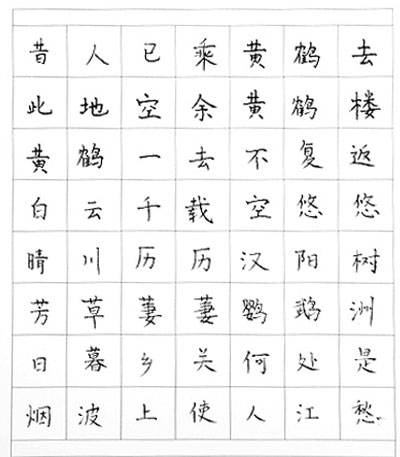 昔人已乘黄鹤去
此地空余黄鹤楼
黄鹤一去不复返
白云千载空悠悠
晴川历历汉阳树
芳草萋萋鹦鹉洲
日暮乡关何处是
烟波上使人江愁